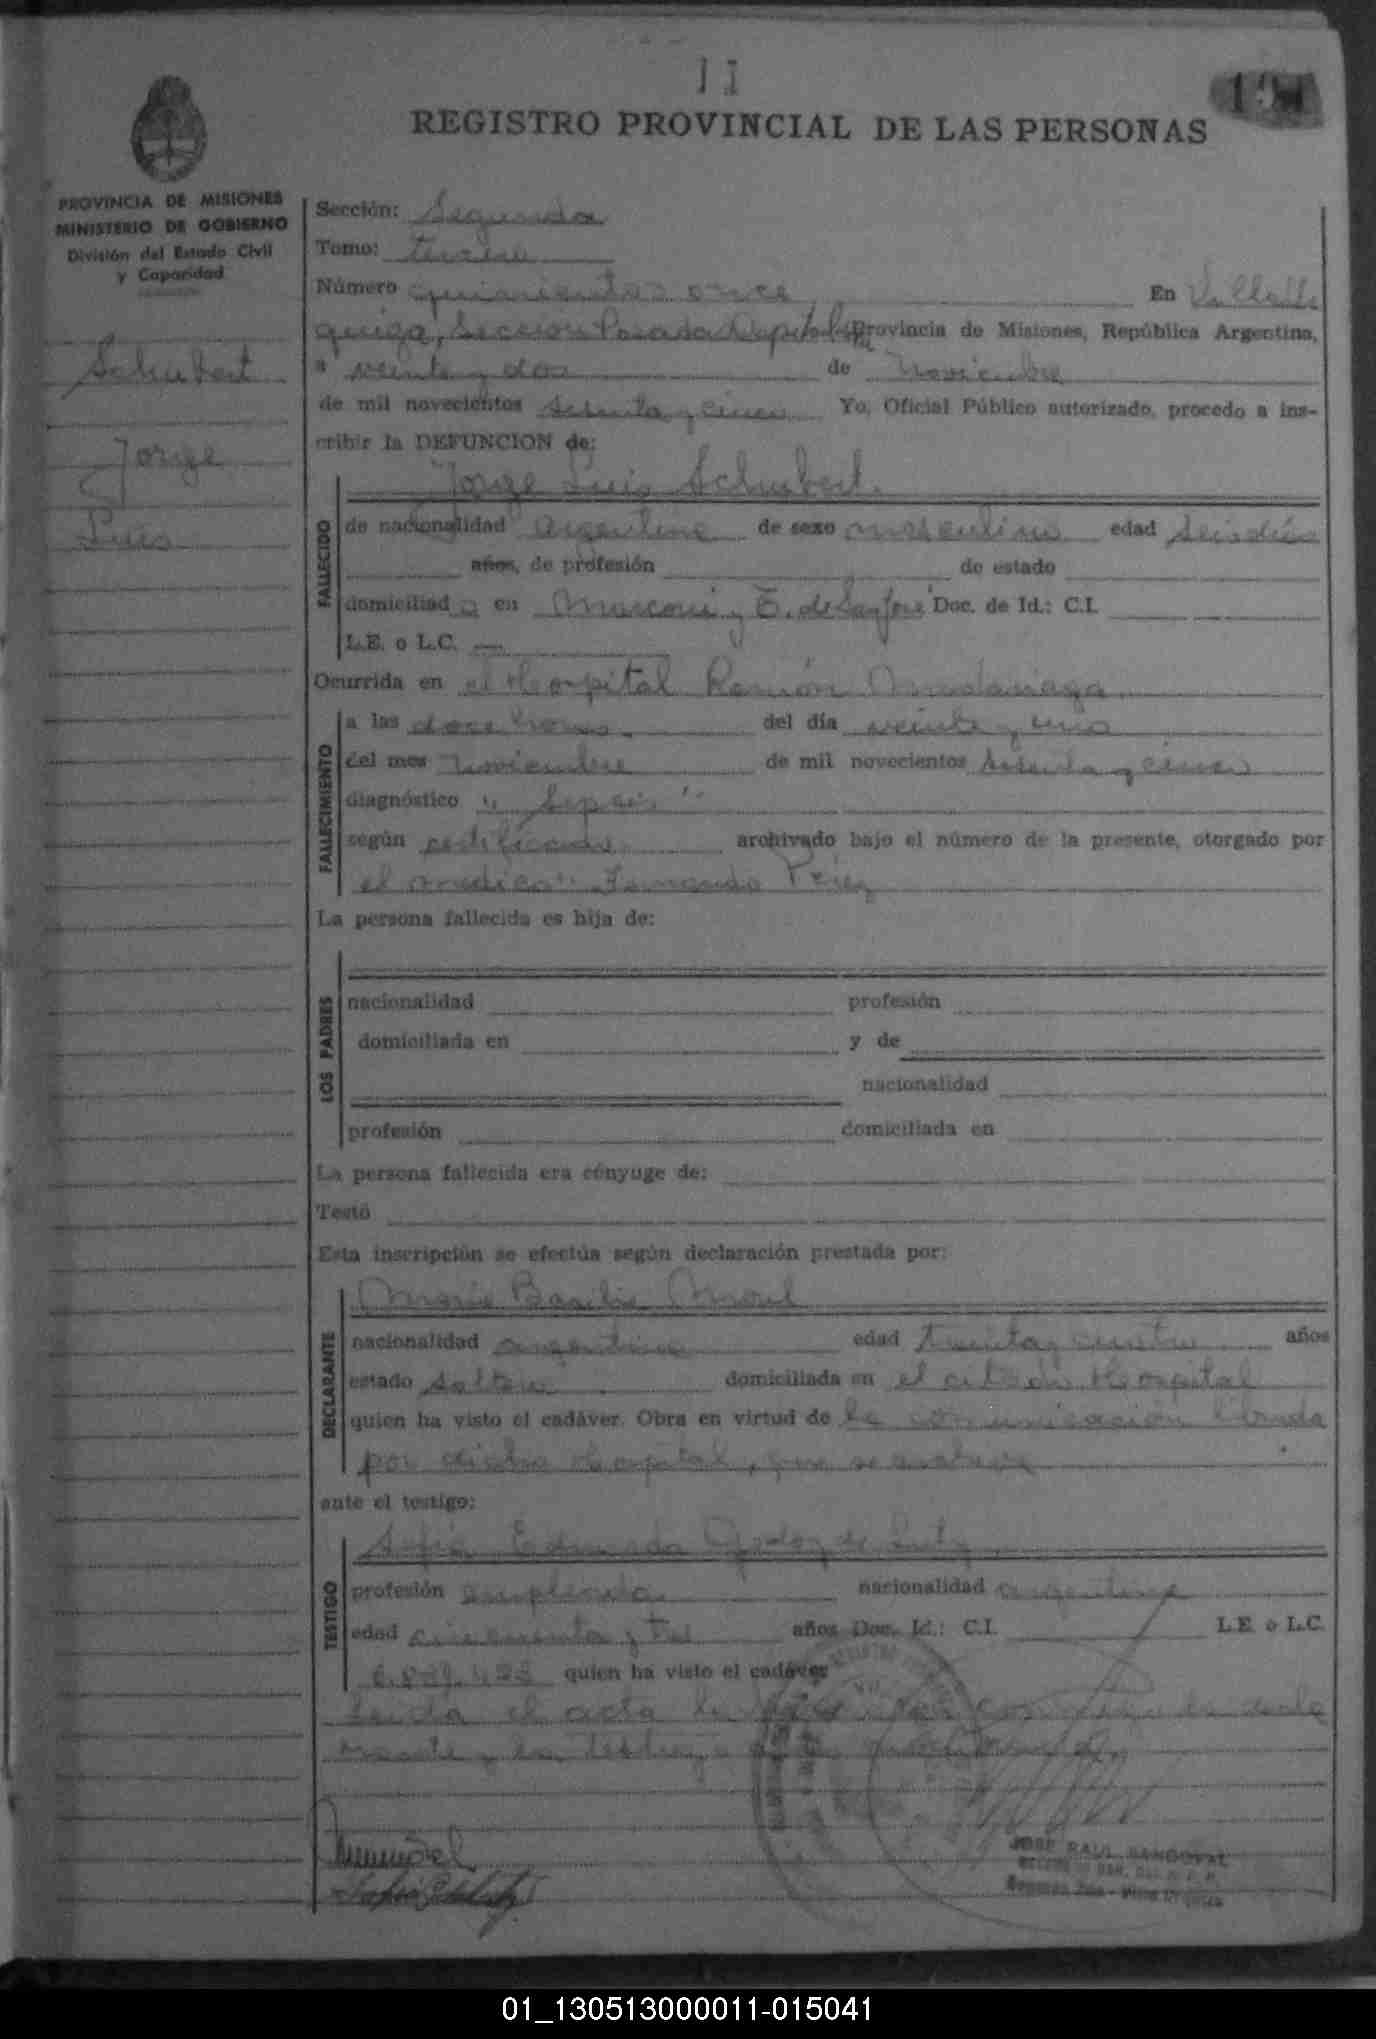 11
191
REGISTRO PROVINCIAL DE LAS PERSONAS
PROVINCIA DE MISIONES
MINISTERIO DE GOBIERNO
División del Estado Civil
y Capacidad
Schubert
Jorge
Luis
Sección: Segunda
Tomo: tercero
Número quinientos once En Villa U
quiza, Sección Posadas Capital Provincia de Misiones, República Argentina,
a veinte y dos de Noviembre
de mil novecientos setenta y cinco Yo, Oficial Público autorizado, procedo a ins-
cribir la DEFUNCION de:
Jorge Luis Schubert.
FALLECIDO
de nacionalidad argentina de sexo masculino edad seis días
años, de profesión de estado
domiciliado en Marconi y E. de San José Doc. de Id.: C.I.
L.E. o L.C.
Ocurrida en el Hospital Ramón Madariaga
FALLECIMIENTO
a las doce horas. del día veinte y uno
del mes noviembre de mil novecientos setenta y cinco
diagnóstico " Sepsis "
según certificado archivado bajo el número de la presente, otorgado por
el médico: Fernando Pérez
La persona fallecida es hija de:
LOS PADRES
nacionalidad profesión
domiciliada en y de
nacionalidad
profesión domiciliada en
La persona fallecida era cónyuge de:
Testó
Esta inscripción se efectúa según declaración prestada por:
DECLARANTE
María Basilia
nacionalidad argentina edad treinta y cuatro años
estado soltera domiciliada en el citado Hospital
quien ha visto el cadáver. Obra en virtud de la comunicación librada
por dicho Hospital, que se archiva
ante el testigo:
TESTIGO
Sofía Eduarda Godoy de Lutz
profesión empleada nacionalidad argentina
edad cincuenta y tres años Doc. Id.: C.I. L.E. o L.C.
quien ha visto el cadáver
Leída el acta la firman conmigo la decla
rante y la testigo
JOSE RAUL SANDOVAL
01_130513000011-015041